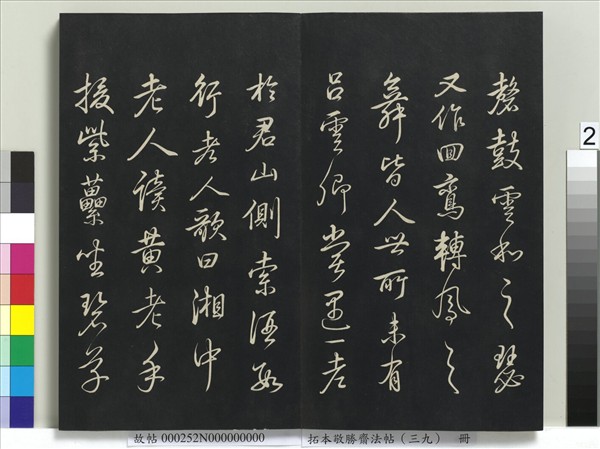 磬鼓雲和之瑟
又作回鸞轉鳳之
舞皆人世所未有
呂雲卿嘗遇一老
於君山側索酒數
行老人歌曰湘中
老人讀黃老手
援紫藟坐碧草
2
故帖 000252N000000000 拓本敬勝齋法帖（三九） 冊